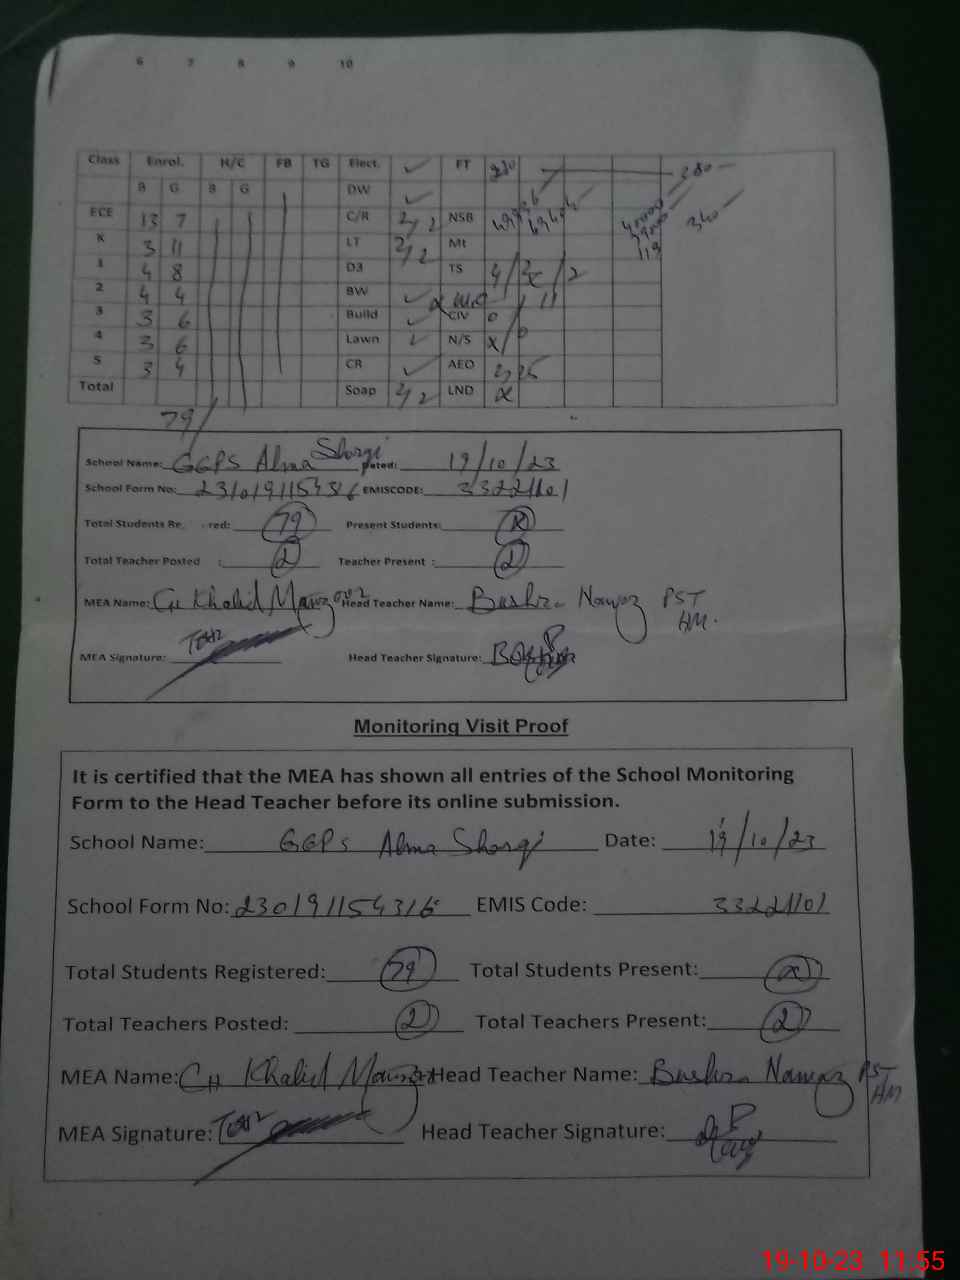 6 7 8 9 10
Class Enrol. N/C FB TG Elect. ✓ FT 280
B G B G DW ✓
ECE 13 7 C/R 2/2 NSB
K 3 11 LT 2/2 Mt 119
1 4 8 D3 TS 4 / / 2
2 4 4 BW ✓
3 3 6 Build ✓ CIV 0
4 3 6 Lawn ✓ N/S x / 0
5 3 4 CR ✓ AEO
Total Soap 2/2 LND x
79/
School Name: GGPS Alma Sharqi Dated: 19/10/23
School Form No: 230191154316 EMISCODE: 33221101
Total Students Re red: 79 Present Students: x
Total Teacher Posted : 2 Teacher Present : 2
MEA Name: CH Khalid Head Teacher Name: Bushra Nawaz PST
HM.
MEA Signature: Head Teacher Signature:
Monitoring Visit Proof
It is certified that the MEA has shown all entries of the School Monitoring
Form to the Head Teacher before its online submission.
School Name: GGPS Alma Sharqi Date: 19/10/23
School Form No: 230191154316 EMIS Code: 33221101
Total Students Registered: 79 Total Students Present: x
Total Teachers Posted: 2 Total Teachers Present: 2
MEA Name: CH Khalid Head Teacher Name: Bushra Nawaz PST
HM
MEA Signature: Head Teacher Signature:
19-10-23 11:55